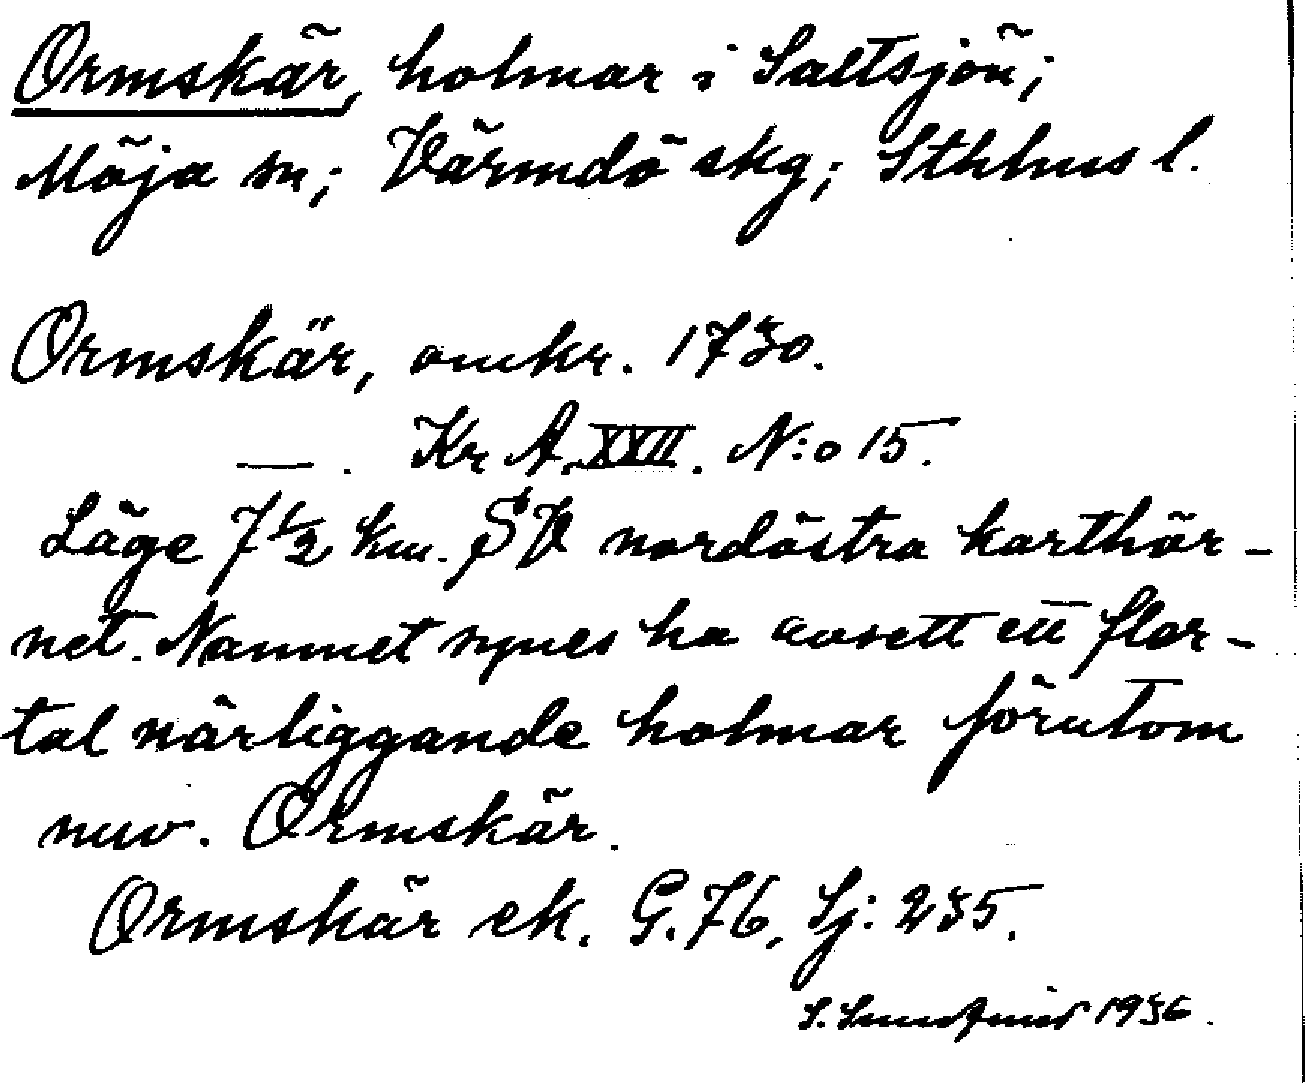 Ormskär, holmar i Saltsjön;
Möja sn; Värmdö skg; Sthlms l.
Ormskär, omkr. 1730.
— . Kr A. XXII. N:o 15.
Läge 7 1/2 km. SV nordöstra karthör-
net. Namnet synes ha avsett ett fler-
tal närliggande holmar förutom
nuv. Ormskär.
Ormskär ek. G. 76, Sj: 235.
S. 1936.